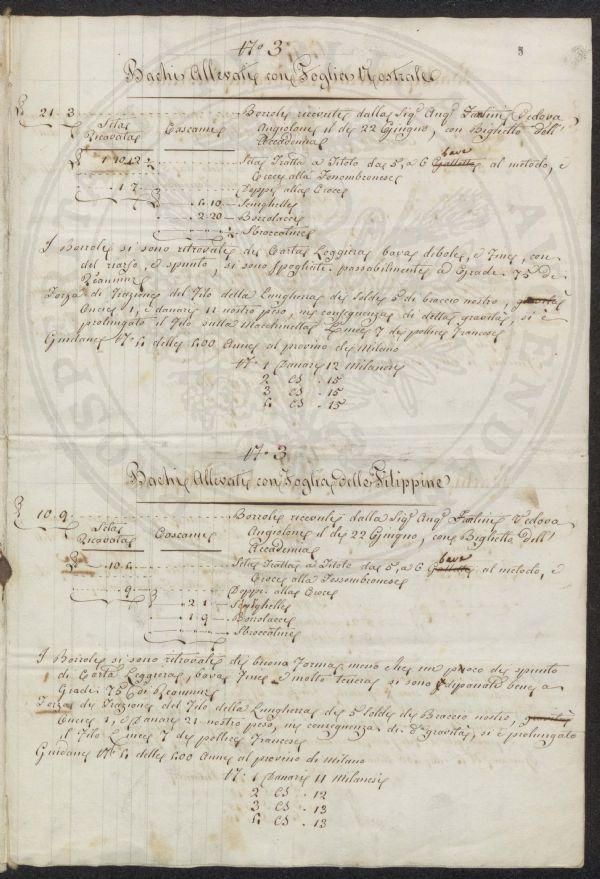 N.° 3
8
Bachi Allevati con Foglia Nostrale
21. 3 Bozzoli ricevuti dalla Sig.ª Ang.ª Vedova
Seta Ricavata Cascami Angiolone il dì 22 Giugno, con Biglietto dell'
Accademia
1. 10. 12 Seta Tratta a Titolo da 5, a 6 bave al metodo, e
Croce alla Fosombronese
1. 7 Doppi alla Croce
6. 10 Strighelle
2. 20 Bozzolacci
Sbroccature
I Bozzoli si sono ritrovati di Carta Leggiera bava debole, e fine, con
del riarso, e spunto, si sono spogliati possibilmente a Gradi 75 de
Réaumur
Forza di Trazione del Filo della Lungheza di Soldi 5 di braccio nostro,
Oncie 1, e danari 11 nostro peso, in conseguenza di detta gravità, si è
prolungato il Filo sulla Macchinetta Linee 7 di pollice Francese
Guidane N.° 4 delle 400 Anne al provino di Milano
N.° 1 Danari 12 Milanesi
2 15
3 15
4 15
N.° 3
Bachi Allevati con Foglia delle Filippine
10. 9 Bozzoli ricevuti dalla Sig.ª Ang.ª Vedova
Seta Ricavata Cascami Angiolone il dì 22 Giugno, con Biglietto dell'
Accademia
10. 4 Seta Tratta a Titolo da 5, a 6 bave al metodo, e
Croce alla Fossombronese
9 Doppi alla Croce
2. 1 Strighelle
1. 9 Bozzolacci
Sbroccature
I Bozzoli si sono ritrovati di buona Forma, meno che un poco di spunto
di Carta Leggiera, bava fine e molto tenera si sono dipanati bene a
Gradi 75 di Réaumur
Forza di Trazione del Filo della Lungheza di 5 Soldi di Braccio nostro,
Oncie 1, e Danari 21 nostro peso, in conseguenza di d.ª gravità, si è prolungato
il Filo Linee 7 di pollice Francese
Guidane N.° 4 delle 400 Anne al provino di Milano
N.° 1 Danari 11 Milanesi
2 12
3 13
4 13